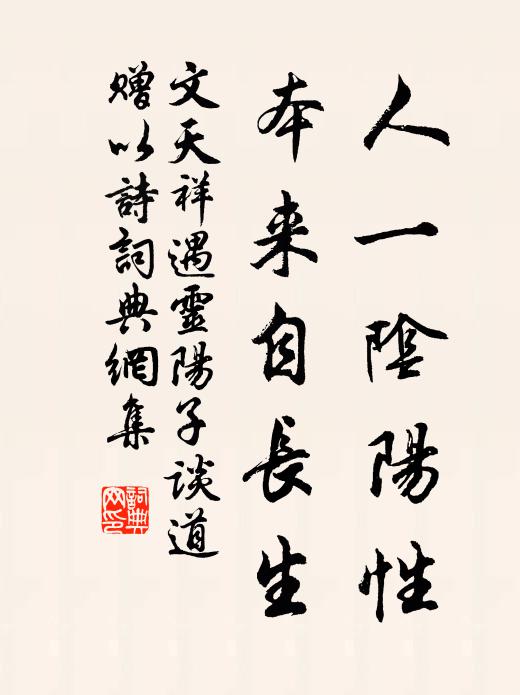 人一陰陽性
本来自長生
文天祥遇靈陽子談道
贈以詩詞典網集
詞典
网印